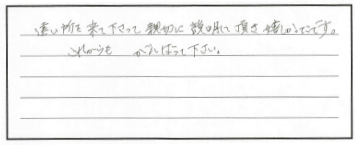 遠い所を来て下さって親切に説明して頂き嬉しかったです。
これからも がんばって下さい。